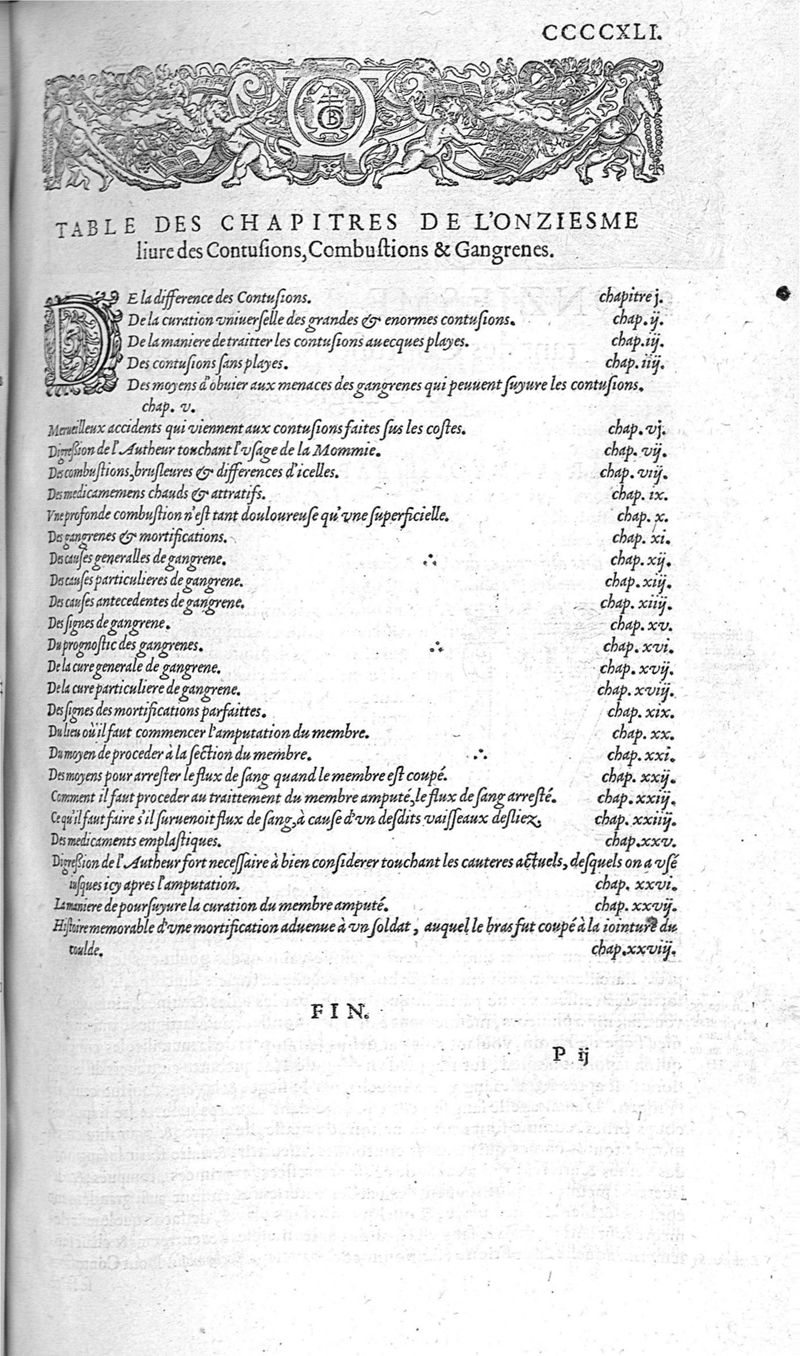 CCCCXLI.
TABLE DES CHAPITRES DE L'ONZIESME
liure des Contuſions, Combuſtions & Gangrenes.
DE la difference des Contuſions. chapitre j.
De la curation vniuerſelle des grandes & enormes contuſions. chap. ij.
De la maniere de traitter les contuſions auecques playes. chap. iij.
Des contuſions ſans playes. chap. iiij.
Des moyens d'obuier aux menaces des gangrenes qui peuuent ſuyure les contuſions.
chap. v.
Merueilleux accidents qui viennent aux contuſions faites ſus les coſtes. chap. vj.
Digreſſion de l'Autheur touchant l'vſage de la Mommie. chap. vij.
Des combuſtions, bruſleures & differences d'icelles. chap. viij.
Des medicamemens chauds & attratifs. chap. ix.
Vne profonde combuſtion n'eſt tant douloureuſe qu'vne ſuperficielle. chap. x.
Des gangrenes & mortifications. chap. xi.
Des cauſes generalles de gangrene. chap. xij.
Des cauſes particulieres de gangrene. chap. xiij.
Des cauſes antecedentes de gangrene. chap. xiiij.
Des ſignes de gangrene. chap. xv.
Du prognoſtic des gangrenes. chap. xvi.
De la cure generale de gangrene. chap. xvij.
De la cure particuliere de gangrene. chap. xviij.
Des ſignes des mortifications parfaittes. chap. xix.
Du lieu où il faut commencer l'amputation du membre. chap. xx.
Du moyen de proceder à la ſection du membre. chap. xxi.
Des moyens pour arreſter le flux de ſang quand le membre eſt coupé. chap. xxij.
Comment il faut proceder au traittement du membre amputé, le flux de ſang arreſté. chap. xxiij.
Ce qu'il faut faire s'il ſuruenoit flux de ſang, à cauſe d'vn deſdits vaiſſeaux deſliez. chap. xxiiij.
Des medicaments emplaſtiques. chap. xxv.
Digreſſion de l'Autheur fort neceſſaire à bien conſiderer touchant les cauteres actuels, deſquels on a vſé
iuſques icy apres l'amputation. chap. xxvi.
La maniere de pourſuyure la curation du membre amputé. chap. xxvij.
Hiſtoire memorable d'vne mortification aduenue à vn ſoldat, auquel le bras fut coupé à la iointure du
coulde. chap. xxviij.
FIN.
P ij